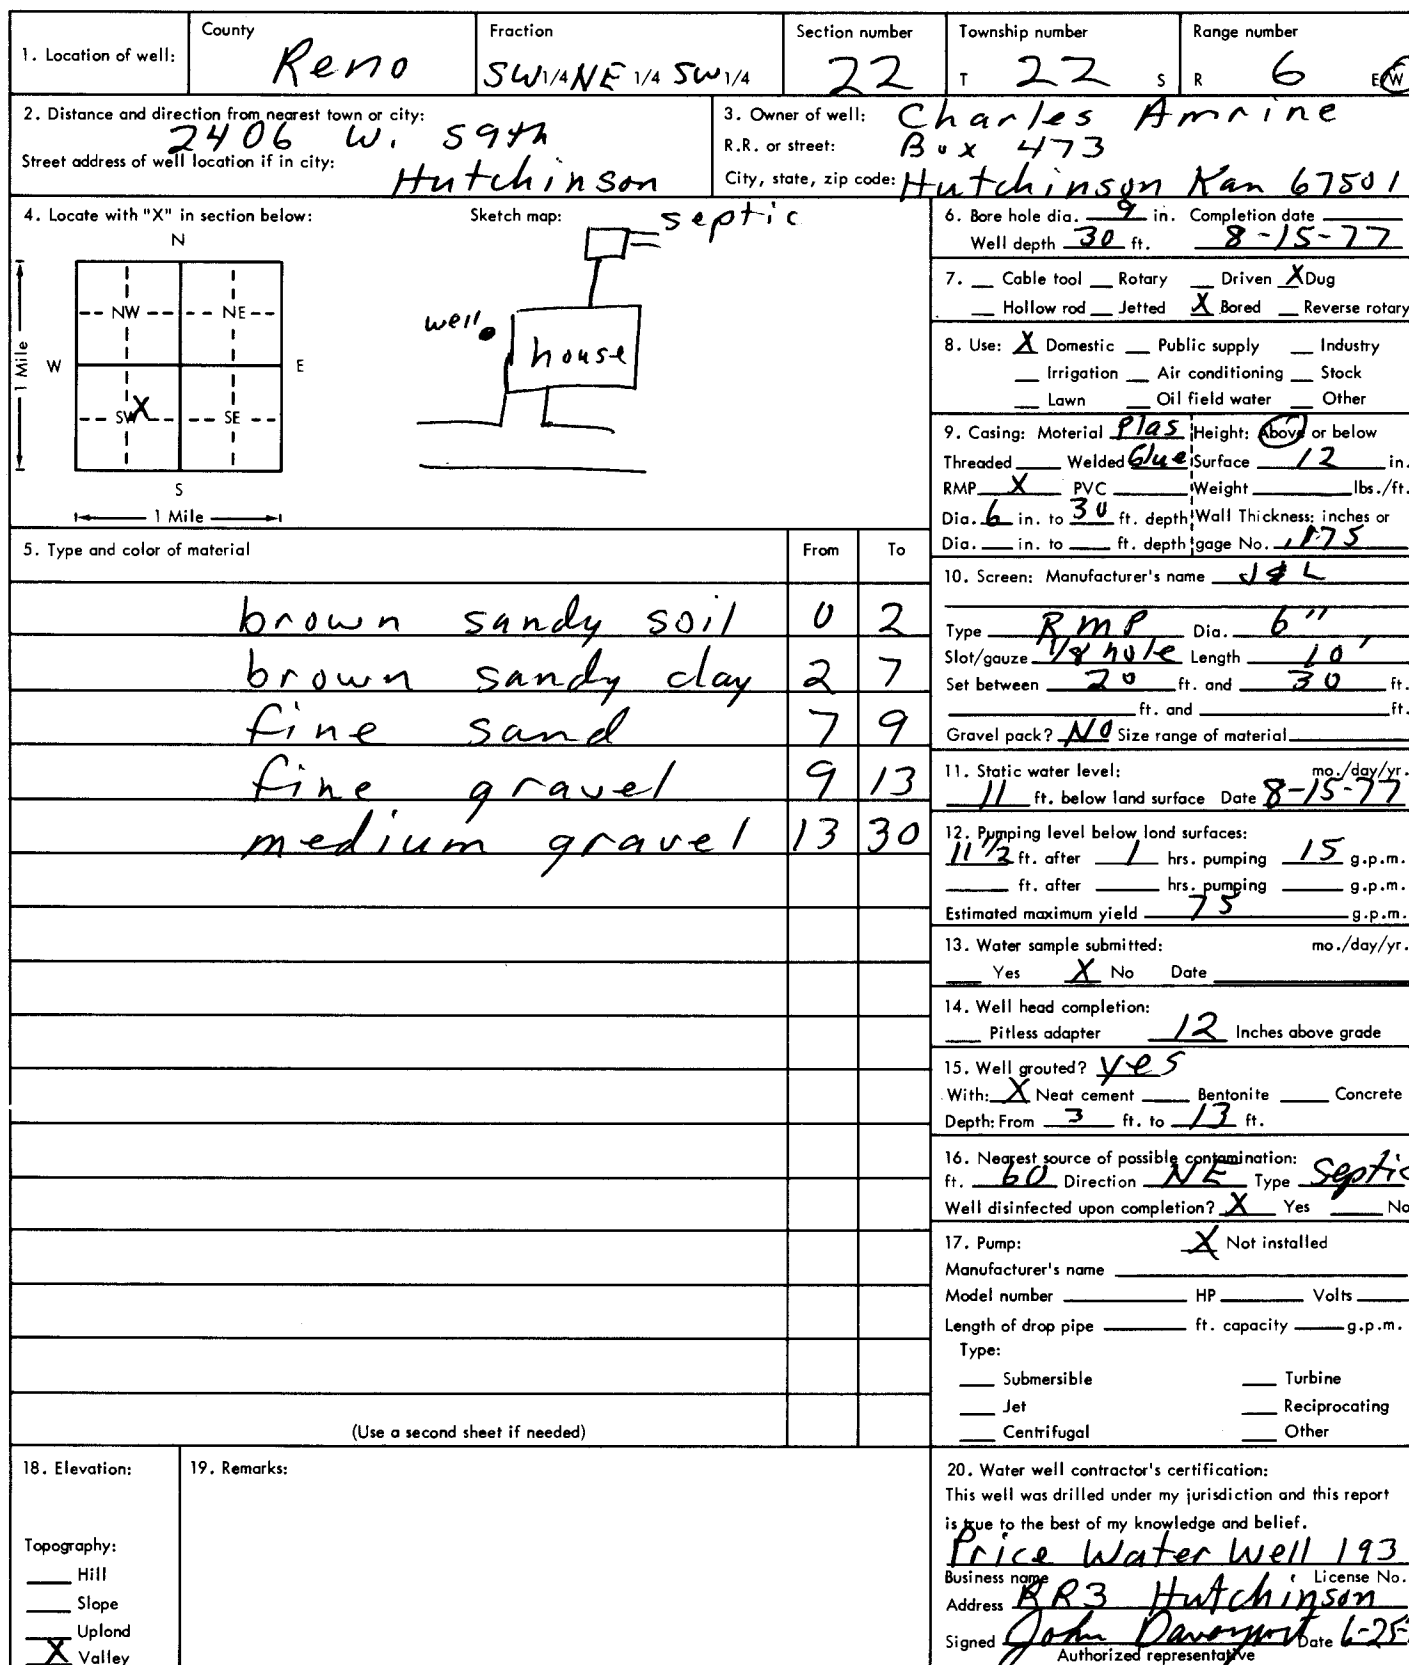 1. Location of well: County Reno Fraction SW 1/4 NE 1/4 SW 1/4 Section number 22 Township number T 22 S Range number R 6 E W
2. Distance and direction from nearest town or city: 2406 W. 59th
Street address of well location if in city: Hutchinson
3. Owner of well: Charles Amrine
R.R. or street: Box 473
City, state, zip code: Hutchinson Kan 67501
4. Locate with "X" in section below:
N
NW NE
W E
SW X SE
S
1 Mile
1 Mile
Sketch map:
septic
well
house
5. Type and color of material From To
brown sandy soil 0 2
brown sandy clay 2 7
fine sand 7 9
fine gravel 9 13
medium gravel 13 30
(Use a second sheet if needed)
6. Bore hole dia. 9 in. Completion date
Well depth 30 ft. 8-15-77
7. Cable tool Rotary Driven X Dug
Hollow rod Jetted X Bored Reverse rotary
8. Use: X Domestic Public supply Industry
Irrigation Air conditioning Stock
Lawn Oil field water Other
9. Casing: Material Plas Height: Above or below
Threaded Welded Glue Surface 12 in.
RMP X PVC Weight lbs./ft.
Dia. 6 in. to 30 ft. depth Wall Thickness: inches or
Dia. in. to ft. depth gage No.
10. Screen: Manufacturer's name J & L
Type RMP Dia. 6"
Slot/gauze 1/8 hole Length 10'
Set between 20 ft. and 30 ft.
ft. and ft.
Gravel pack? NO Size range of material
11. Static water level: mo./day/yr.
11 ft. below land surface Date 8-15-77
12. Pumping level below land surfaces:
11 1/2 ft. after 1 hrs. pumping 15 g.p.m.
ft. after hrs. pumping g.p.m.
Estimated maximum yield 75 g.p.m.
13. Water sample submitted: mo./day/yr.
Yes X No Date
14. Well head completion:
Pitless adapter 12 Inches above grade
15. Well grouted? yes
With: X Neat cement Bentonite Concrete
Depth: From 3 ft. to 13 ft.
16. Nearest source of possible contamination:
ft. 60 Direction NE Type Septic
Well disinfected upon completion? X Yes No
17. Pump: X Not installed
Manufacturer's name
Model number HP Volts
Length of drop pipe ft. capacity g.p.m.
Type:
Submersible Turbine
Jet Reciprocating
Centrifugal Other
18. Elevation:
Topography:
Hill
Slope
Upland
X Valley
19. Remarks:
20. Water well contractor's certification:
This well was drilled under my jurisdiction and this report
is true to the best of my knowledge and belief.
Price Water Well 193
Business name License No.
Address RR3 Hutchinson
Signed John Davenport Date 6-25-
Authorized representative